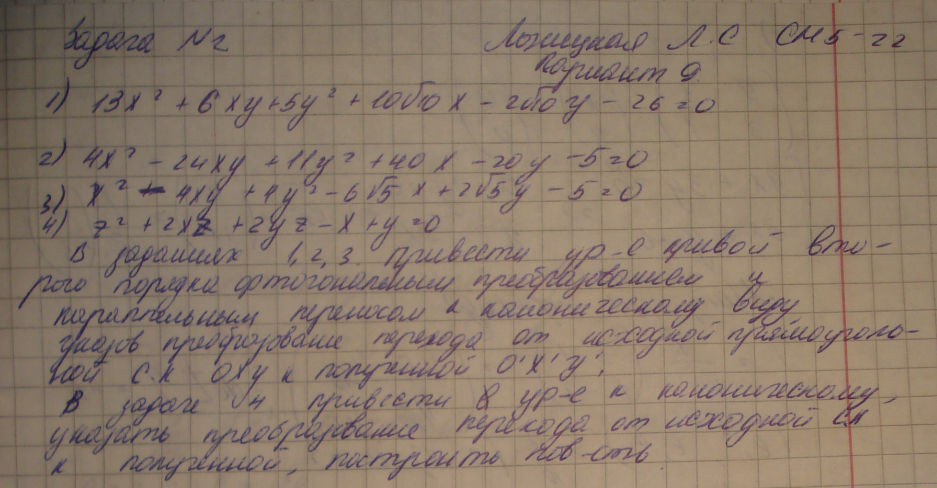 Задача №2 Ложицкая Л.С СМ5-22
Вариант 9
1) 13x² + 6xy + 5y² + 10√10 x - 2√10 y - 26 = 0
2) 4x² - 24xy + 11y² + 40x - 20y - 5 = 0
3) x² - 4xy + 4y² - 6√5 x + 2√5 y - 5 = 0
4) z² + 2xz + 2yz - x + y = 0
В заданиях 1, 2, 3 привести ур-е кривой вто-
рого порядка ортогональным преобразованием и
параллельным переносом к каноническому виду
указав преобразование перехода от исходной прямоуголь-
ной с.к OXY к полученной O'X'Y'.
В задаче 4 привести ур-е к каноническому,
указать преобразование перехода от исходной ск
к полученной, построить пов-сть.